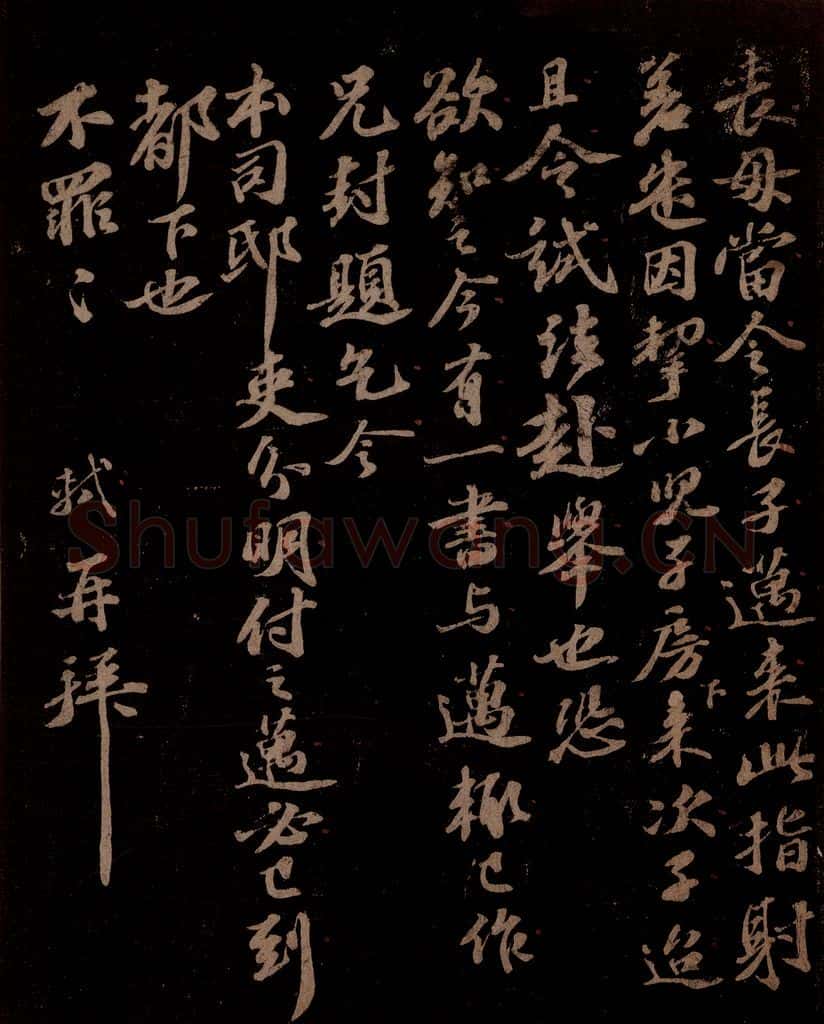 毋當令長子邁来此指射
差遣因挈小兒子房下来次子迨
且令試法赴舉也恐
欲知之今有一書与邁輙已作
兄封題乞令
本司邸吏分明付之邁必已到
都下也
不罪〻 軾再拜
Shufawang.CN